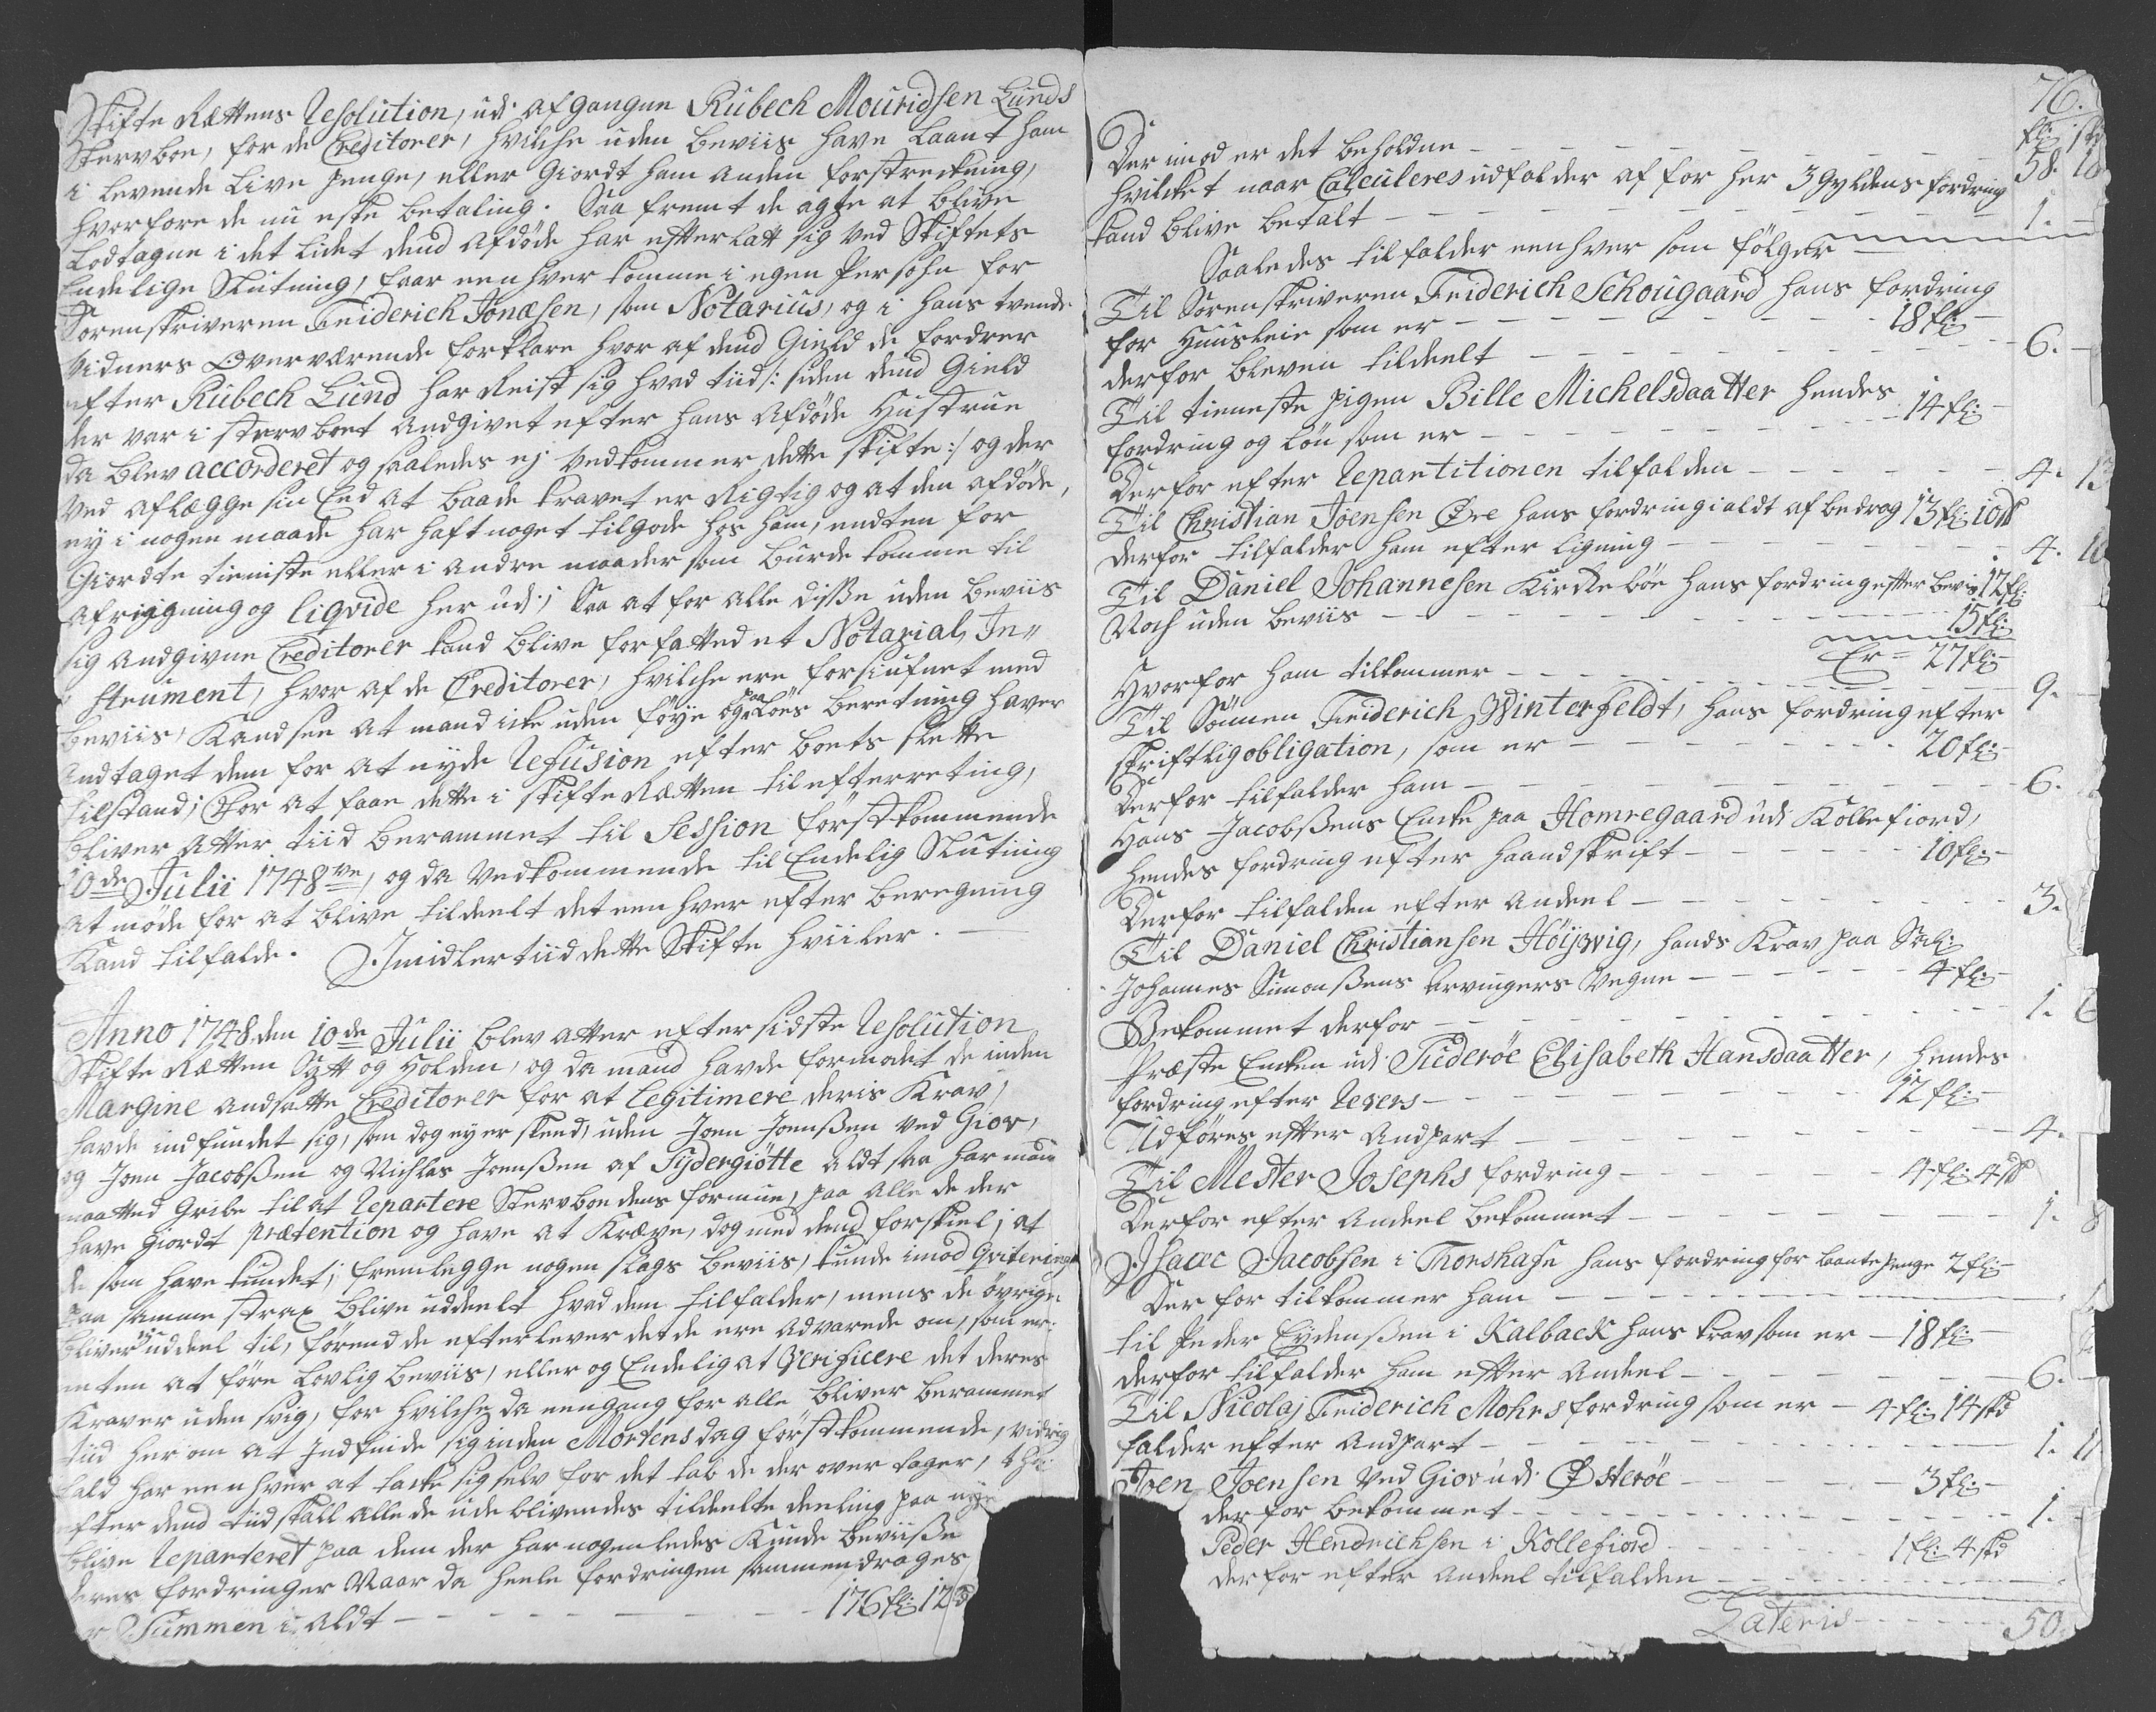 Skifte Rættens Resolution, udi afgangne Rubech Mouridsen Lunds
Stervboe, for de Creditorer, hvilche uden beviis have laant ham
i levende live penge, eller giordt ham anden forstreckning,
hvorfore de nu eske betaling. Saa fremt de agte at blive
lodtagne i det lidet dend afdøde har efterlatt sig ved Skiftets
Endelige Slutning, faar een hver komme i egen Persohn for
Sorenskriveren Friderich Jonæsen, som Notarius, og i hans tvende
Vidners Overværende forklare hvor af dend Gield de fordrer
efter Rubech Lund har Reist sig hvad tiid /: siden dend Gield
der var i stervboet andgivet efter hans afdøde Hustrue
da blev accorderet og saaledes ej vedkommer dette skifte :/ og der
ved aflægge sin Eed at baade kravet er Rigtig og at den afdøde,
ey i nogen maade har haft noget tilgode hos ham, endten for
Giordte tieniste eller i andre maader som burde komme til
afrigning og liqvide her udj; Saa at for alle disse uden beviis
sig andgivne Creditorer kand blive forfatted et Notarial In„
strument, hvor af de Creditorer, hvilche ere forsiufnet med
beviis, Kand see at mand icke uden føye og paa løes beretning haver
andtaget dem for at nyde Refusion efter boets slette
tilstand; For at faae dette i skifte Rætten til efterreting,
bliver atter tiid berammet til Session førstkommende
10de Julii 1748ve, og da vedkommende til Endelig Slutning
at møde for at blive tildeelt det een hver efter beregning
Kand tilfalde. Imidlertiid dette Skifte hviiler.
Anno 1748 den 10de Julii blev atter efter sidste Resolution
Skifte Rætten Satt og Holden, og da mand havde formodet de inden
Margine andsatte Creditorer for at legitimere deris Krav,
havde indfundet sig, som dog ey er skeed, uden Joen Joenssen ved Giov,
og Joen Jacobssen og Nichlas Joenssen af Sydergiøtte Aldt saa har man
maatted gribe til at Repartere Stervboedens formue, paa alle de der
have giordt prætention og have at Kræve, dog med dend forskiel; at
de som have kundet; fremlegge nogen slags beviis, kunde imod Qvitering
paa samme strax blive uddeelt hvad dem tilfalder, mens de øvrige
bliver ey uddeel til, førend de efterlever det de ere advarede om, som er:
enten at føre lovlig beviis, eller og Endelig at Verificere det deres
Kraver uden svig, for hvilche da eengang for alle bliver berammet
tiid her om at Indfinde sig inden Mortens dag førstkommende, vidrig
fald har een hver at tacke sig selv for det tab de der over tager, thi
efter dend tiid skall alle de ude blivendes tildeelte deeling paa nye
blive Reparteret paa dem der har nogenledes Kunde beviisse
deres fordringer Naar da heele fordringen sammendrages
er Summen i aldt — 176 fl: 12
76.
fl: sk
Der imod er det beholdne — 58. 18
hvilcket naar Calculeres udfalder af for her 3 gyldens fordring
kand blive betalt — 1. —
Saaledes tilfalder een hver som følger
Til Sorenskriveren Friderich Schougaard hans fordring
for Huusleie som er — 18 fl:
derfor bleven tildeelt — 6. —
Til tieneste pigen Bille Michelsdaatter hendes
fordring og løn som er — 14 fl:
Derfor efter Repartitionen tilfalden — 4. 13
Til Christian Joensen Øre hans fordring i aldt afbedrag 13 fl: 10 sk
derfor tilfalder ham efter ligning — 4. 10
Til Daniel Johannesen Kirckebøe hans fordring efter bevis 12 fl:
Noch uden beviis — 15 fl:
Er = 27 fl:
Hvorfor ham tilkommer — 9. —
Til Sønnen Friderich Winterfeldt, hans fordring efter
skriftlig obligation, som er — 20 fl:
Derfor tilfalder ham — 6.
Hans Jacobssens Encke paa Homregaard udi Kollefiord,
hendes fordring efter haandskrift — 10 fl:
Derfor tilfalden efter Andeel — 3.
Til Daniel Christiansen Høijvig, hands Krav paa Sal:
Johannes Simonssens Arvingers Vegne — 4 fl:
Bekommet derfor — 1. 6
Præste Encken udi Suderøe Elisabeth Hansdaatter, hendes
fordring efter Revers — 12 fl:
Udføres efter Andpart — 4.
Til Mester Josephs fordring — 4 fl: 4 sk
Derfor efter Andeel bekommet — 1. 8
Isaac Jacobsen i Thorshafn hans fordring for laante penge 2 fl:
Der for tilkommer ham —
til Peder Eydenssen i Kalback hans krav som er — 18 fl:
derfor tilfalder ham efter Andeel — 6.
Til Nicolaj Friderich Mohrs fordring som er — 4 fl: 14 skd
falder efter Andpart — 1. 11
Joen Joensen ved Giov udi Østerøe — 3 fl:
derfor bekommet — 1.
Peder Hendrichsen i Kollefiord — 1 fl: 4 skd
derfor efter Andeel tilfalden —
Lateris — 50.